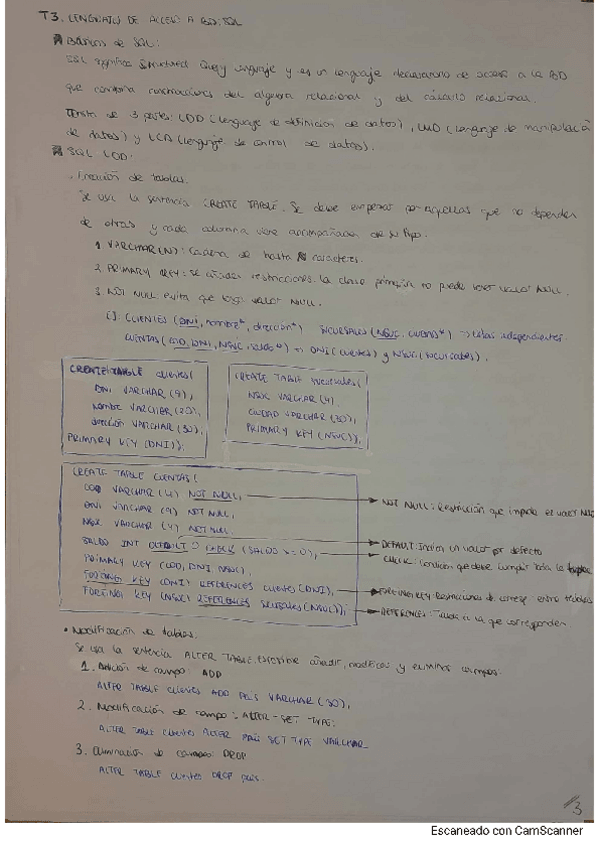 T3. LENGUAJES DE ACCESO A BD: SQL
Básicos de SQL:
SQL significa Structured Query Language y es un lenguaje declarativo de acceso a la BD
que combina construcciones del álgebra relacional y del cálculo relacional.
Consta de 3 partes: LDD (Lenguaje de definición de datos), LMD (Lenguaje de manipulación
de datos) y LCD (Lenguaje de control de datos).
SQL LDD:
· Creación de tablas.
Se usa la sentencia CREATE TABLE. Se debe empezar por aquellas que no dependen
de otras y cada columna viene acompañada de su tipo.
1. VARCHAR(N): Cadena de hasta N caracteres.
2. PRIMARY KEY: Se añaden restricciones. La clave primaria no puede tener valor NULL.
3. NOT NULL: evita que tenga valor NULL.
CLIENTES (DNI, nombre*, dirección*) SUCURSALES (NSUC, ciudad*) → tablas independientes
CUENTAS (COD, DNI, NSUC, saldo*) DNI (clientes) y NSUC (sucursales).
CREATE TABLE clientes(
DNI VARCHAR (9),
nombre VARCHAR (20),
dirección VARCHAR (30),
PRIMARY KEY (DNI));
CREATE TABLE sucursales(
NSUC VARCHAR (4),
CIUDAD VARCHAR (30),
PRIMARY KEY (NSUC));
CREATE TABLE CUENTAS(
COD VARCHAR (4) NOT NULL,
DNI VARCHAR (9) NOT NULL,
NSUC VARCHAR (4) NOT NULL,
SALDO INT DEFAULT 0 CHECK (SALDO >= 0),
PRIMARY KEY (COD, DNI, NSUC),
FOREIGN KEY (DNI) REFERENCES clientes (DNI),
FOREIGN KEY (NSUC) REFERENCES sucursales (NSUC));
NOT NULL: Restricción que impide el valor NULL
DEFAULT: Inicia un valor por defecto
CHECK: Condición que debe cumplir toda la tupla
FOREIGN KEY: Restricciones de entre tablas
REFERENCES: Tabla a la que corresponden
• Modificación de tablas.
Se usa la sentencia ALTER TABLE. Permite añadir, modificar y eliminar campos.
1. Adición de campo: ADD
ALTER TABLE clientes ADD PAIS VARCHAR (30);
2. Modificación de campo: ALTER - SET - TYPE:
ALTER TABLE clientes ALTER PAIS SET TYPE VARCHAR
3. Eliminación de campo: DROP
ALTER TABLE clientes DROP país.
3
Escaneado con CamScanner